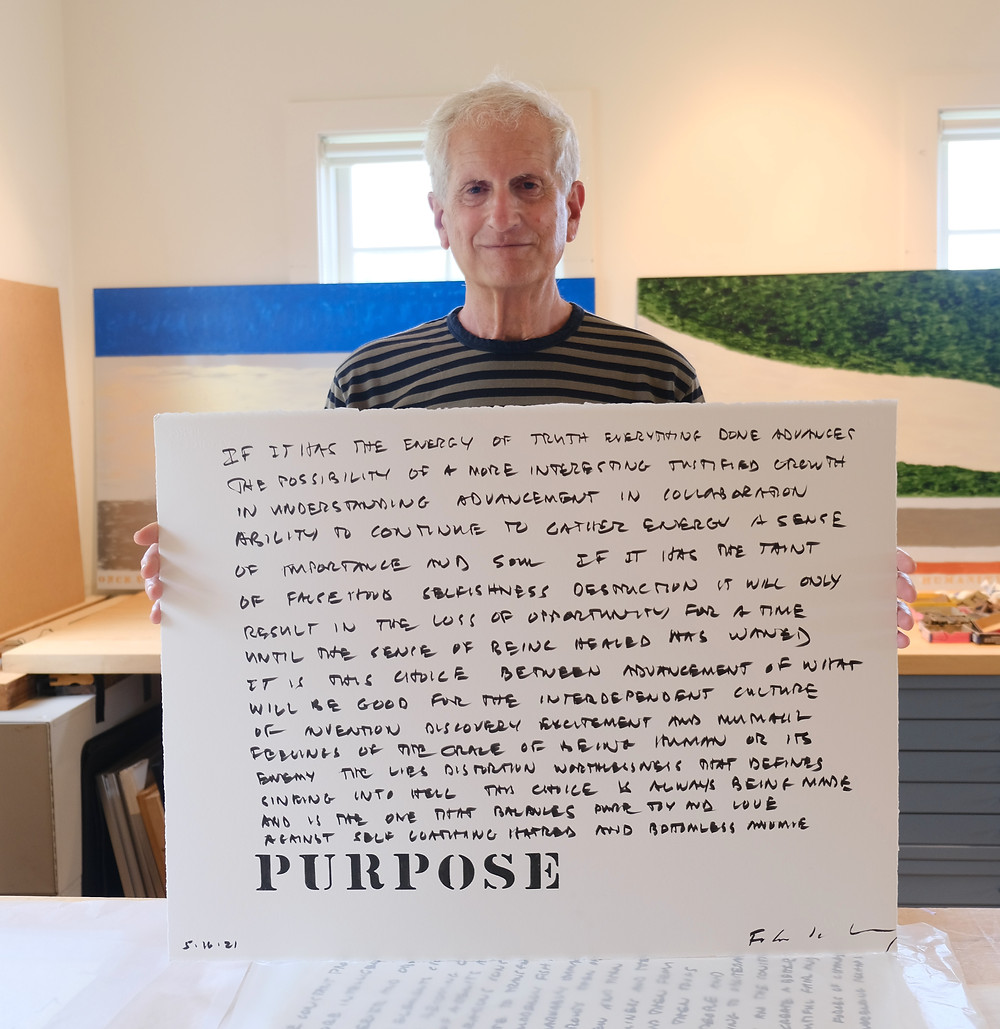 IF IT HAS THE ENERGY OF TRUTH EVERYTHING DONE ADVANCES
THE POSSIBILITY OF A MORE INTERESTING JUSTIFIED GROWTH
IN UNDERSTANDING ADVANCEMENT IN COLLABORATION
ABILITY TO CONTINUE TO GATHER ENERGY A SENSE
OF IMPORTANCE AND SOUL IF IT HAS THE TAINT
OF SELFISHNESS DESTRUCTION IT WILL ONLY
RESULT IN THE LOSS OF OPPORTUNITY FOR A TIME
UNTIL THE SENSE OF BEING HEALED HAS WANED
IT IS THIS CHOICE BETWEEN ADVANCEMENT OF WHAT
WILL BE GOOD FOR THE INTERDEPENDENT CULTURE
OF INVENTION DISCOVERY EXCITEMENT AND MUTUAL
FEELINGS OF THE GRACE OF BEING HUMAN OR ITS
ENEMY THE LIES DISTORTION WORTHLESSNESS THAT DEFINES
SINKING INTO HELL THIS CHOICE IS ALWAYS BEING MADE
AND IS THE ONE THAT BALANCES PURE JOY AND LOVE
AGAINST SELF LOATHING HATRED AND BOTTOMLESS ANOMIE
PURPOSE
5.16.21